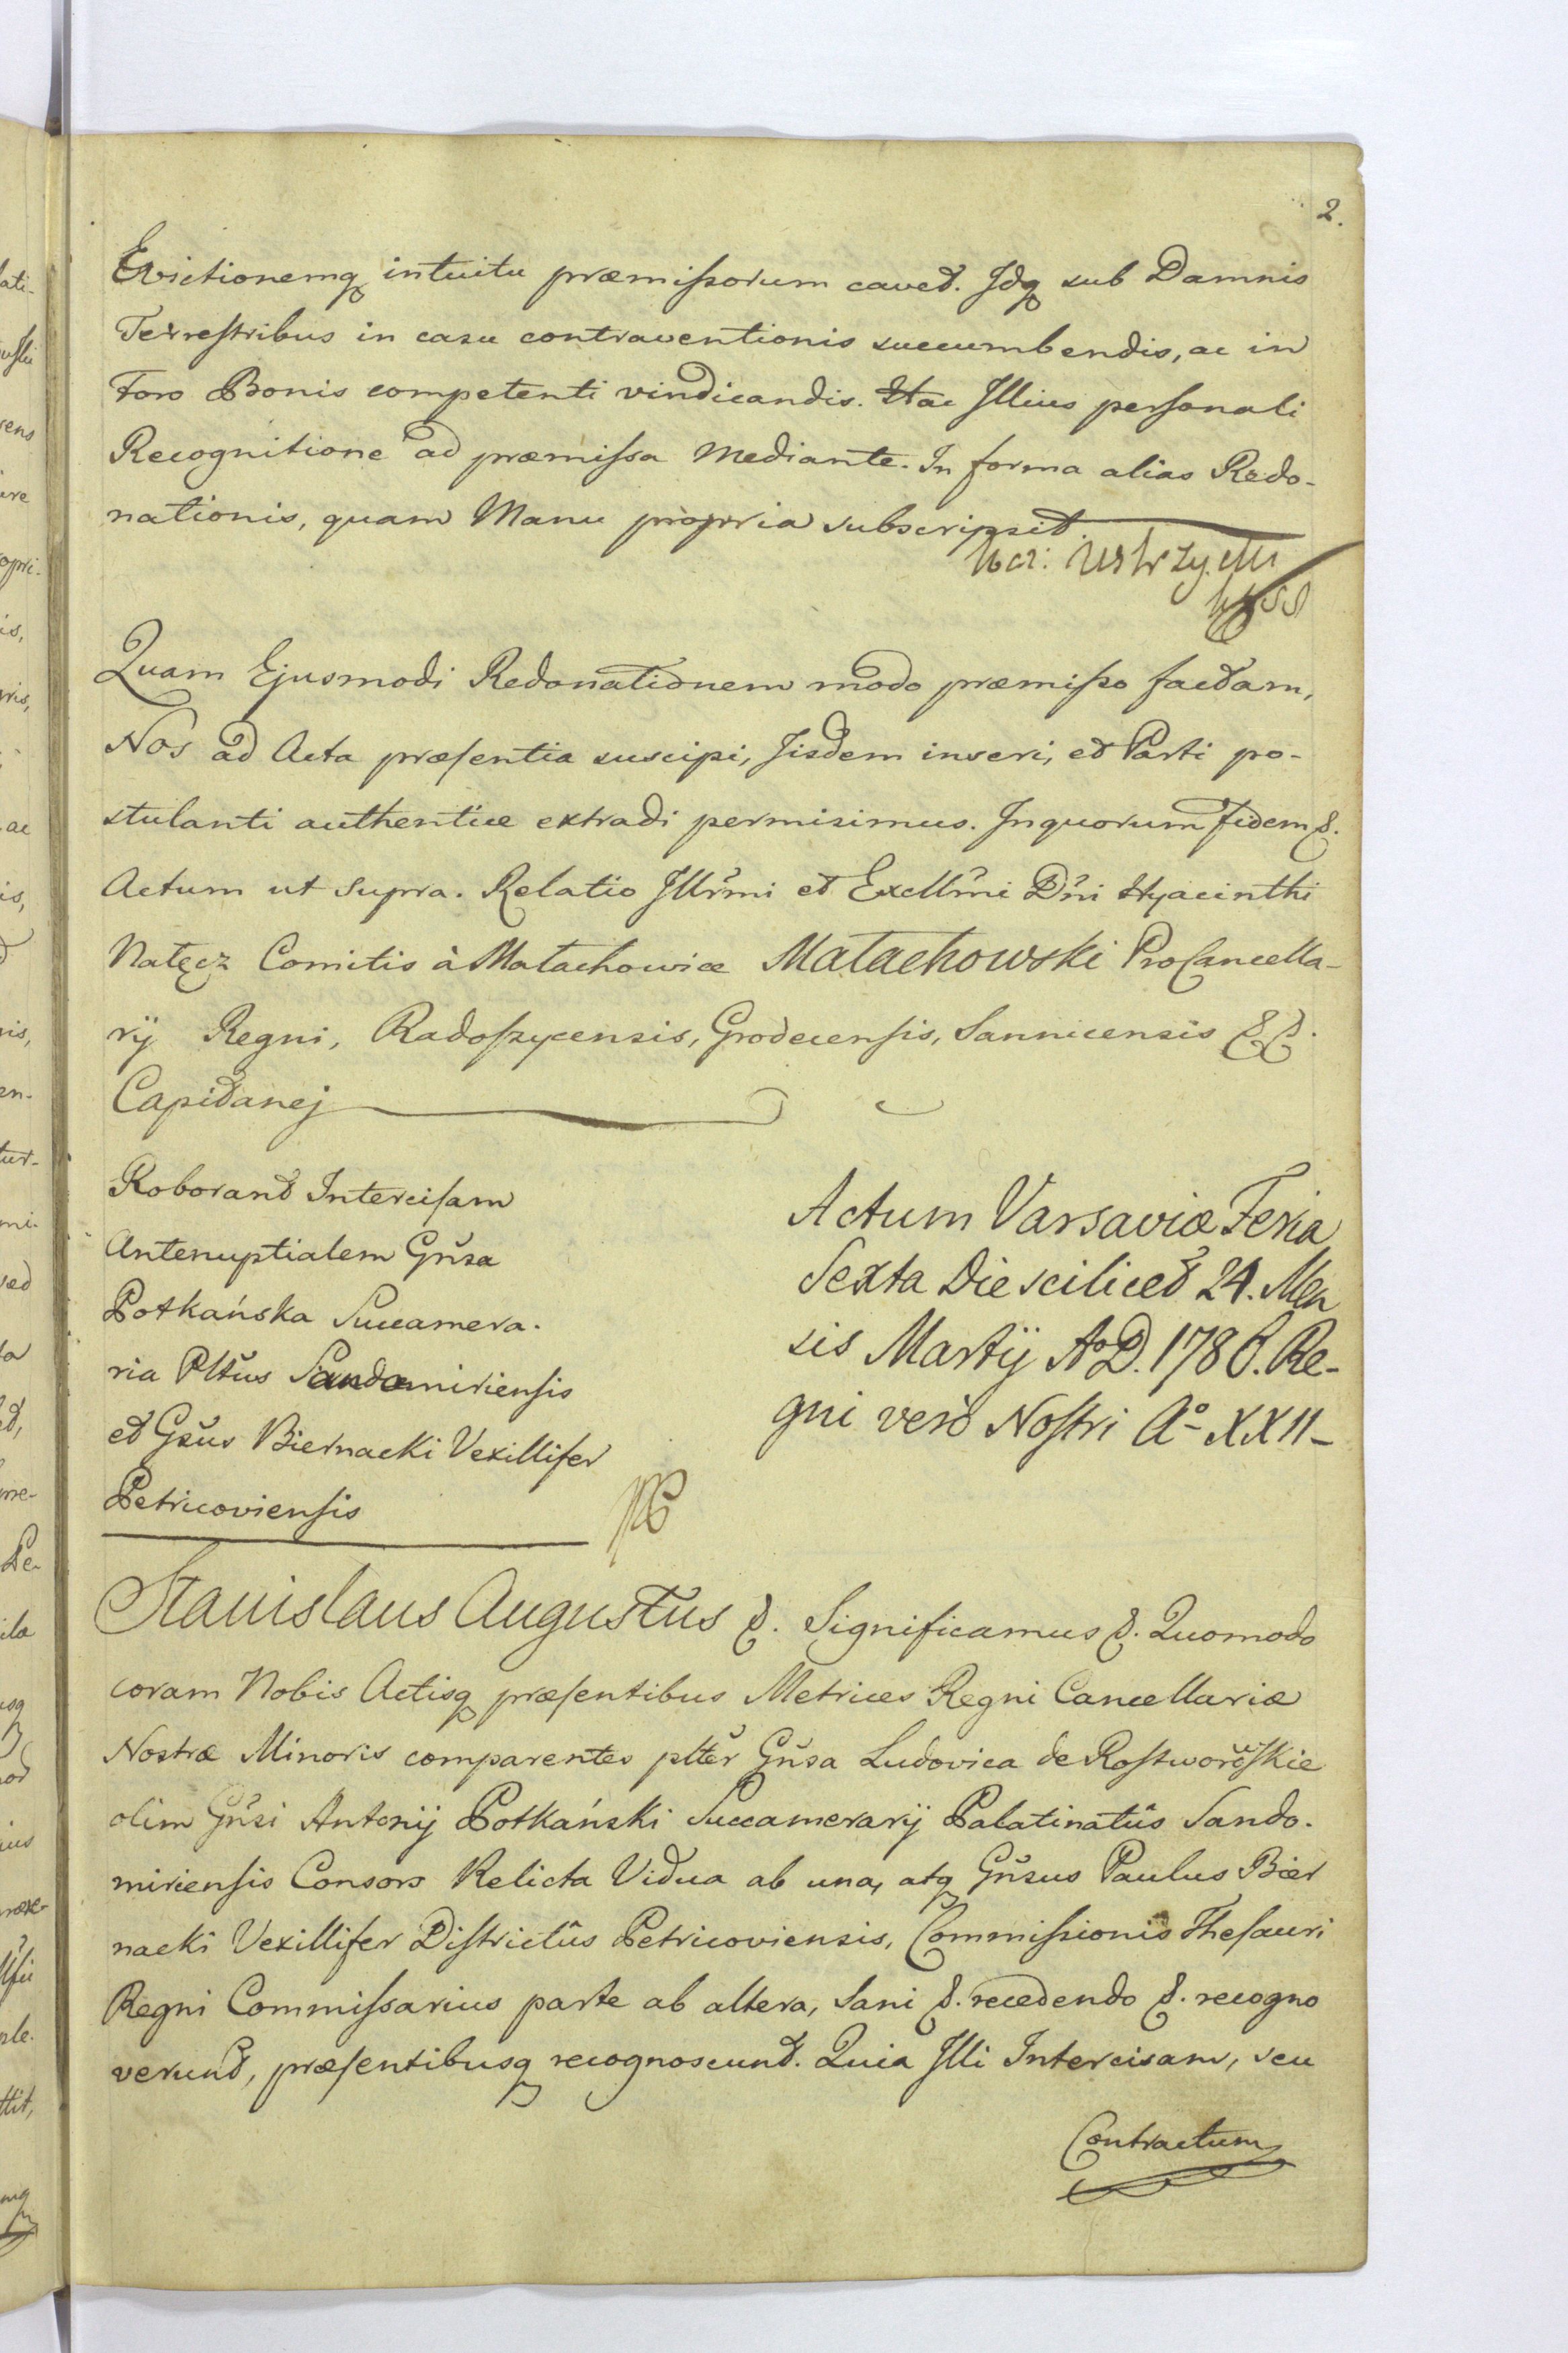 2.
Evictionemq intuitu præmissorum cavet. Jdq sub Damnis
Terrestribus in casu contraventionis succumbendis, ac in
Foro Bonis competenti vindicandis. Hac Illius personali
Recognitione ad præmissa mediante. In forma alias Redo-
nationis, quam Manu propria subscripsit.
Quam Ejusmodi Redonationem modo præmisso factam,
Nos ad Acta præsentia suscipi, Jisdem inseri, et Parti po-
stulanti authentice extradi permisimus. Inquorum fidem &.
Actum ut supra. Relatio Illr̃mi et Excllm̃i Dñi Hyacinthi
Nałęcz Comitis à Małachowice Małachowski ProCancella-
rij Regni, Radoszycensis, Grodecensis, Sannicensis &&.
Capitanej
Roborant Intercisam
Antenuptialem Gñsa
Potkańska Succamera-
ria Pltũs Sandomiriensis
et Gñsus Biernacki Vexillifer
Petricoviensis
Actum Varsaviæ Feria
Sexta Die scilicet 24. Men
sis Martij AoD. 1786. Re-
gni vero Nostri Ao XXII-
Stanislaus Augustus &. Significamus &. Quomodo
coram Nobis Actisq præsentibus Metrices Regni Cancellariæ
Nostræ Minoris comparentes pltẽr Gñsa Ludovica de Rostworowskie
olim Gñsi Antonij Potkański Succamerarij Palatinatûs Sando-
miriensis Consors Relicta Vidua ab una, atq Gñsus Paulus Bier
nacki Vexillifer Districtûs Petricoviensis, Commissionis Thesauri
Regni Commissarius parte ab altera, Sani &. recedendo &. recogno
verunt, præsentibusq recognoscunt. Quia Illi Intercisam, seu
Contractum